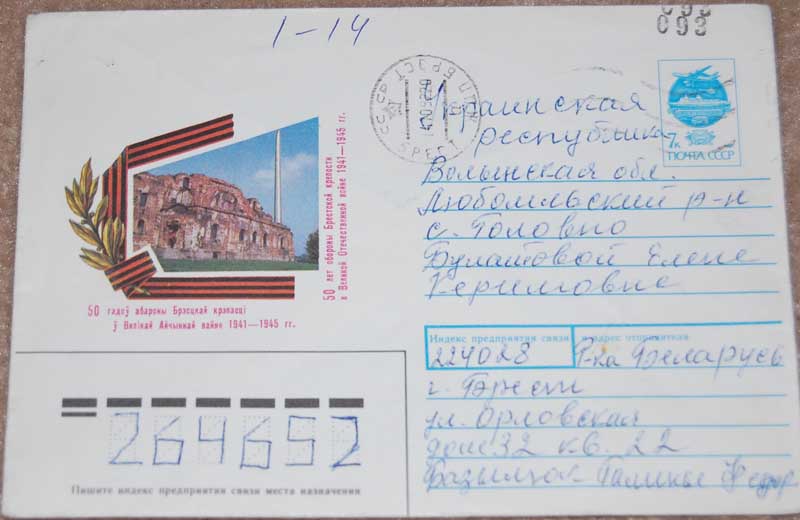 1-14
093
7к
ПОЧТА СССР
СССР
БРЭСТ
БРЕСТ
50 лет обороны Брестской крепости
в Великой Отечественной войне 1941—1945 гг.
50 гадоў абароны Брэсцкай крэпасці
ў Вялікай Айчыннай вайне 1941—1945 гг.
Украинская
республика
Волынская обл.
Любомльский р-н
с. Головно
Булатовой Елене
Керимовне
Индекс предприятия связи и адрес отправителя
224028 Р-ка Беларусь
г. Брест
ул. Орловская
дом 32 кв. 22
Галины Федор
264652
Пишите индекс предприятия связи места назначения